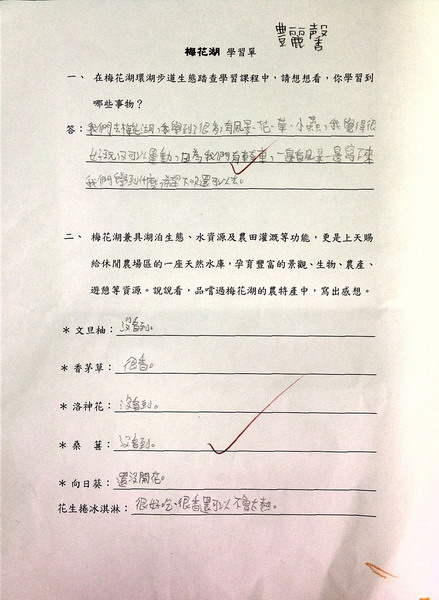 豐麗馨
梅花湖 學習單
一、 在梅花湖環湖步道生態踏查學習課程中，請想想看，你學習到
哪些事物？
答：我們去梅花湖，我學到了很多，有風景、花、草、小蟲，我覺得很
好玩又可以運動，因為我們有騎車，一邊看風景一邊寫下來
我們學到什麼，希望下次還可以去。
二、 梅花湖兼具湖泊生態、水資源及農田灌溉等功能，更是上天賜
給休閒農場區的一座天然水庫，孕育豐富的景觀、生物、農產、
遊憩等資源。說說看，品嚐過梅花湖的農特產中，寫出感想。
＊文旦柚：沒看到。
＊香茅草：很香。
＊洛神花：沒看到。
＊桑　葚：沒看到。
＊向日葵：還沒開花。
花生捲冰淇淋：很好吃、很香還可以不會太甜。